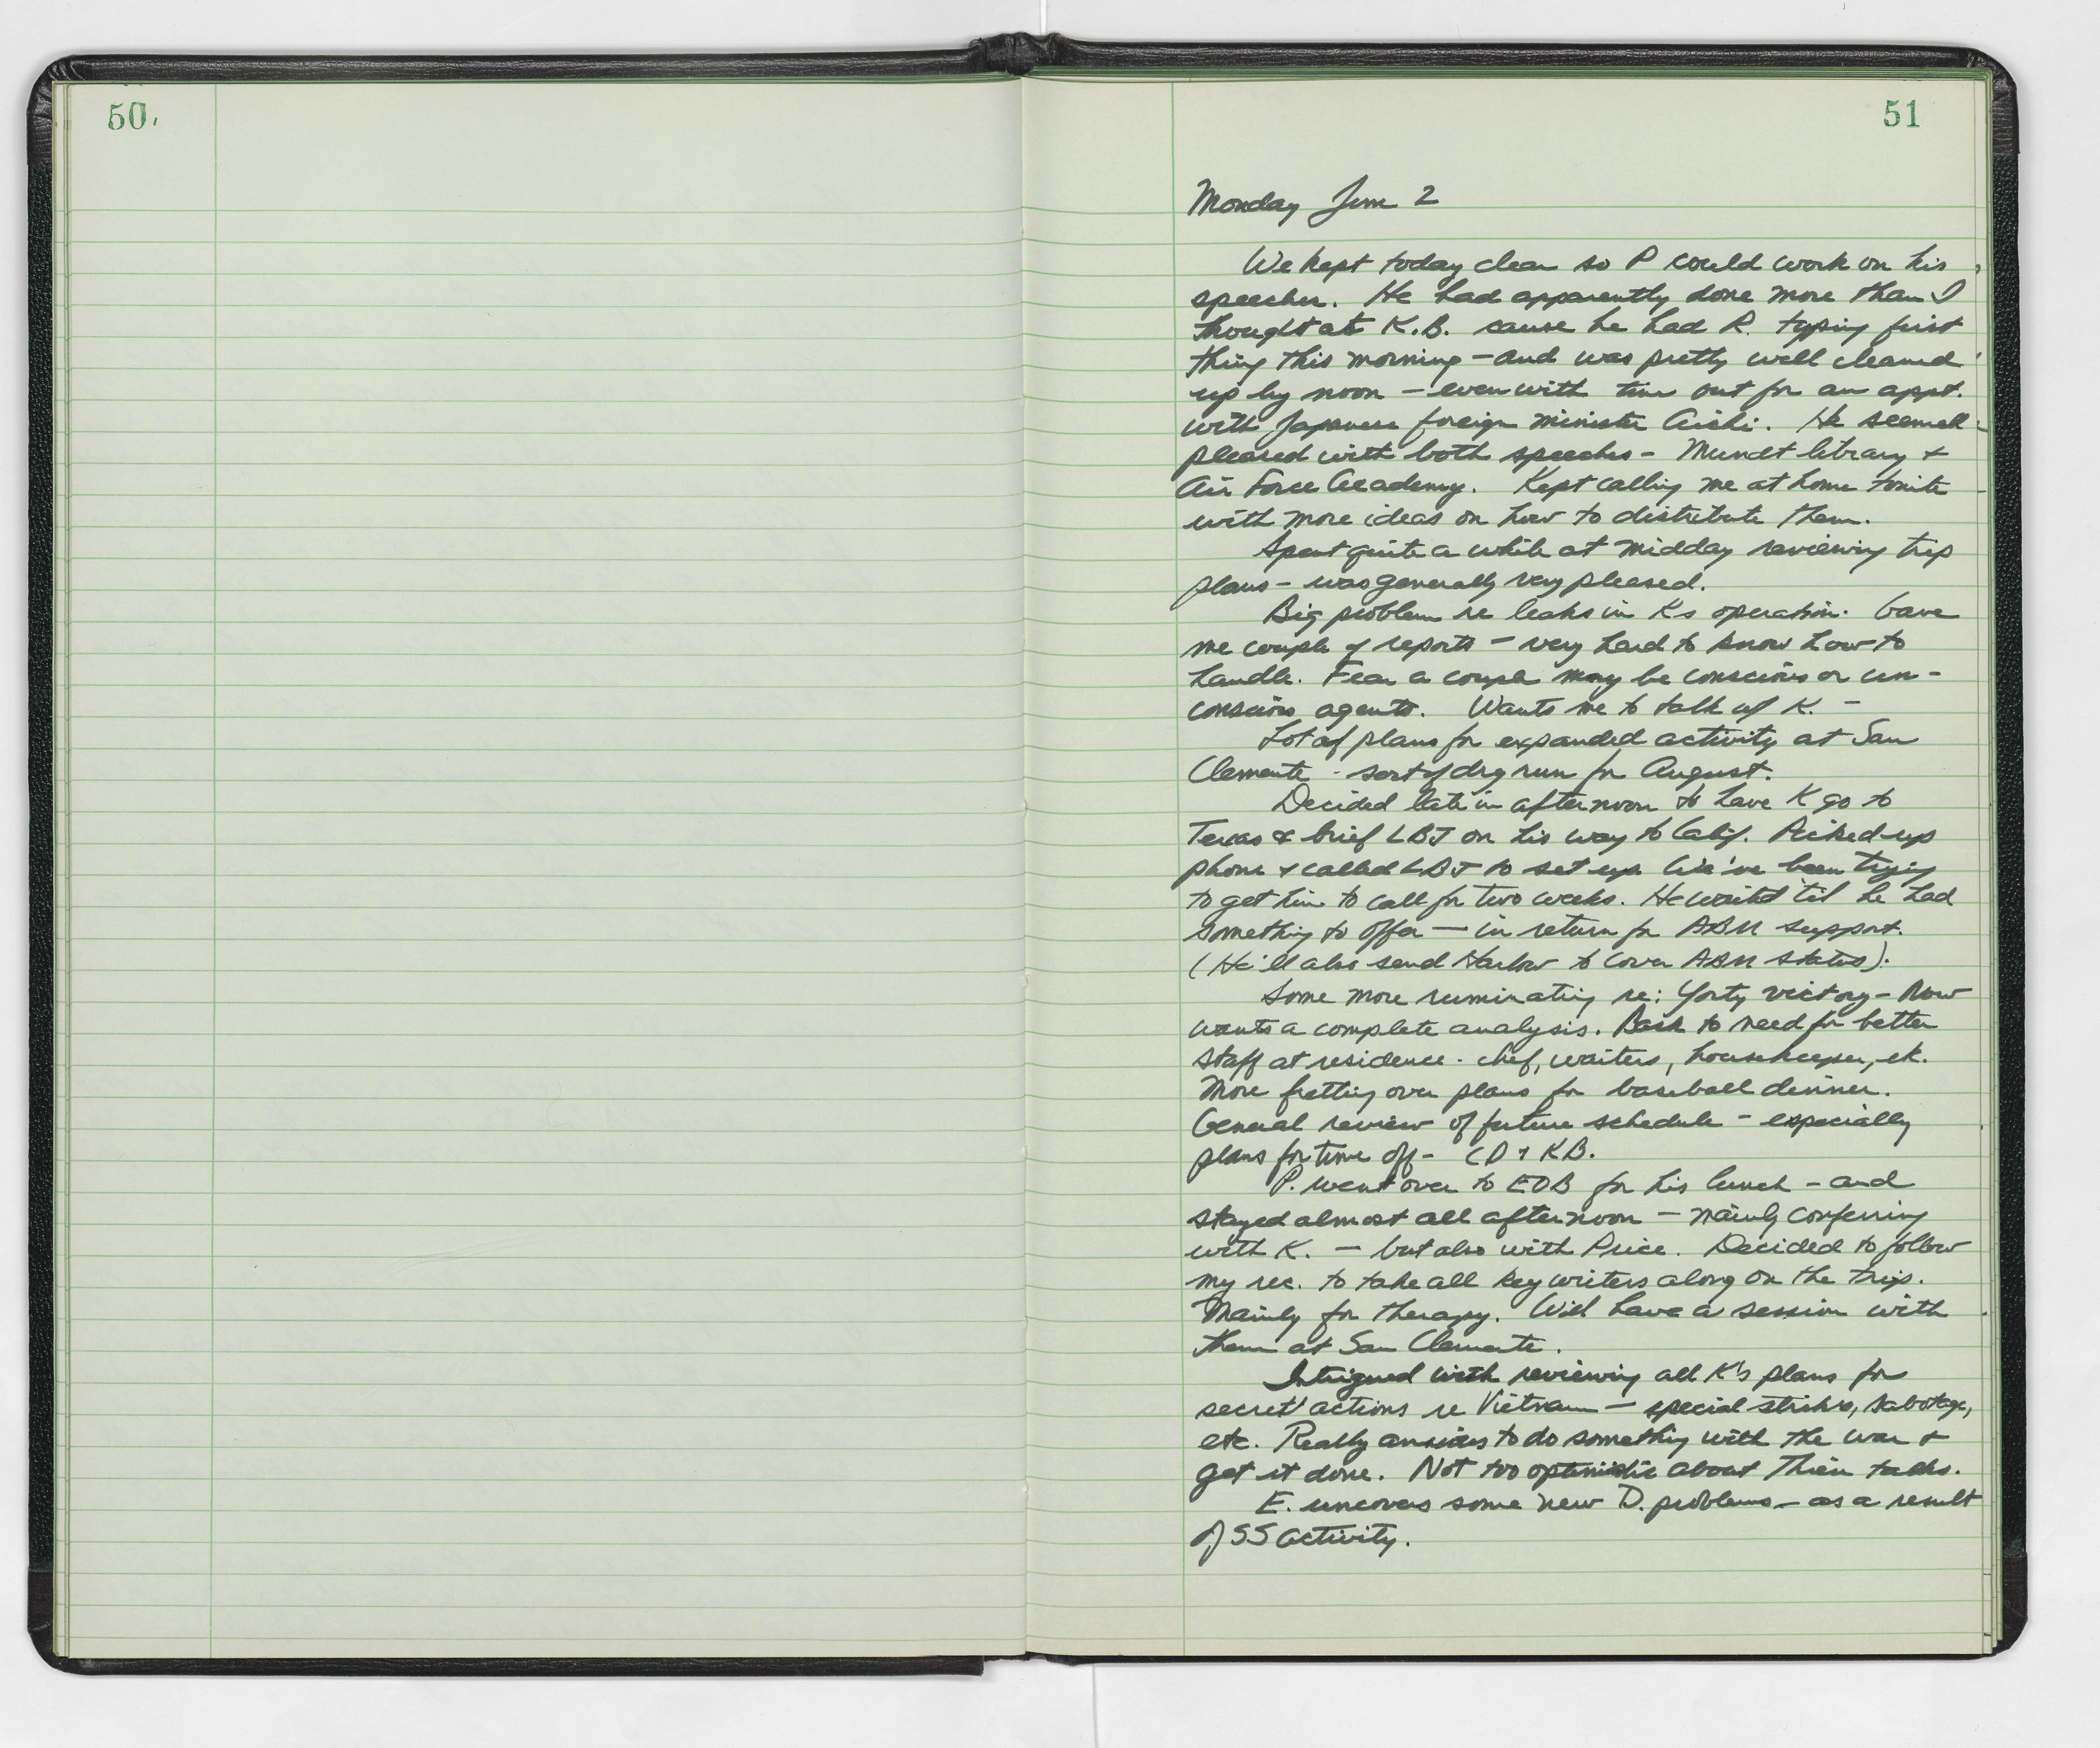 50.
51
Monday June 2
We kept today clear so P could work on his
speeches. He had apparently done more than I
thought at K.B. cause he had R. typing first
thing this morning - and was pretty well cleaned
up by noon - even with time out for an appt.
with Japanese foreign minister Aichi. He seemed
pleased with both speeches - Mundt library +
Air Force Academy. Kept calling me at home tonite
with more ideas on how to distribute them.
Spent quite a while at midday reviewing trip
plans - was generally very pleased.
Big problem re leaks in K's operation. Gave
me couple of reports - very hard to know how to
handle. Fear a couple may be conscious or un-
conscious agents. Wants me to talk w/ K. -
Lot of plans for expanded activity at San
Clemente - sort of dry run for August.
Decided late in afternoon to have K go to
Texas & brief LBJ on his way to Calif. Picked up
phone & called LBJ to set up. We've been trying
to get him to call for two weeks. He waited 'til he had
something to offer - in return for ABM support.
(He'll also send Harlow to cover ABM status).
Some more ruminating re: Yorty victory - Now
wants a complete analysis. Back to need for better
staff at residence - chef, waiters, housekeeper, etc.
More fretting over plans for baseball dinner.
General review of future schedule - especially
plans for time off - CD & KB.
P. went over to EOB for his lunch - and
stayed almost all afternoon - mainly conferring
with K. - but also with Price. Decided to follow
my rec. to take all key writers along on the trip.
Mainly for therapy. Will have a session with
them at San Clemente.
Intrigued with reviewing all K's plans for
secret actions re Vietnam - special strikes, sabotage,
etc. Really anxious to do something with the war +
get it done. Not too optimistic about Thieu talks.
E. uncovers some new D. problems - as a result
of SS activity.